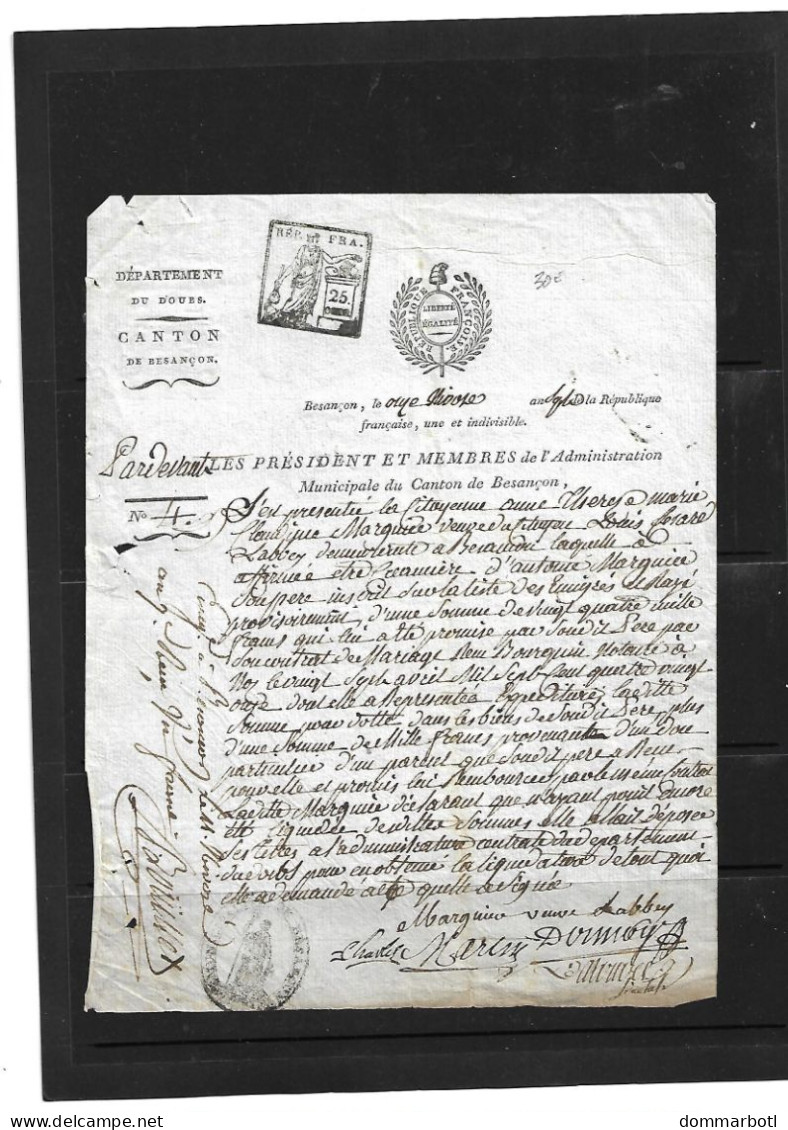 RÉP. FRA.
25.
CENT.
30€
DÉPARTEMENT
DU DOUBS.
CANTON
DE BESANÇON.
RÉPUBLIQUE FRANÇOISE.
LIBERTÉ
ÉGALITÉ
Besançon, le onze Nivose an Sept de la République
française, une et indivisible.
Pardevant LES PRÉSIDENT ET MEMBRES de l'Administration
Municipale du Canton de Besançon,
No 4.
S'est presentée la Citoyenne anne Therese marie
Marquise veuve du Citoyen Louis
Labbey demeurante a Besancon laquelle a
affirmée etre Creanciere d'antoine Marquise
Son pere inscrit Sur la liste des Emigrés et Rayé
provisoirement d'une Somme de vingt quatre mille
frans qui lui a été promise par Son dit Pere par
Son contrat de Mariage Reçu Bourquin Notaire à
le vingt Sept avril Mil Sept Cent quatre vingt
onze dont elle a Representée Expeditures, laditte
Somme pour dotte dans les biens de Son dit Pere, plus
d'une Somme de Mille francs provenante d'un don
particulier d'un parent que Son dit pere a
et promis lui Rembourcer par le meme Contrat
Laditte Marquise déclarant que n'ayant point Encore
été liquidée desdittes Sommes elle allait déposer
Ses titres a l'administration centrale du departement
du Doubs pour en obtenir la liquidation de tout quoi
elle a demandé acte quelle a Signée
Marquise veuve Labbey
Charles Marcin Dormoy
an 7. Reçu Un franc